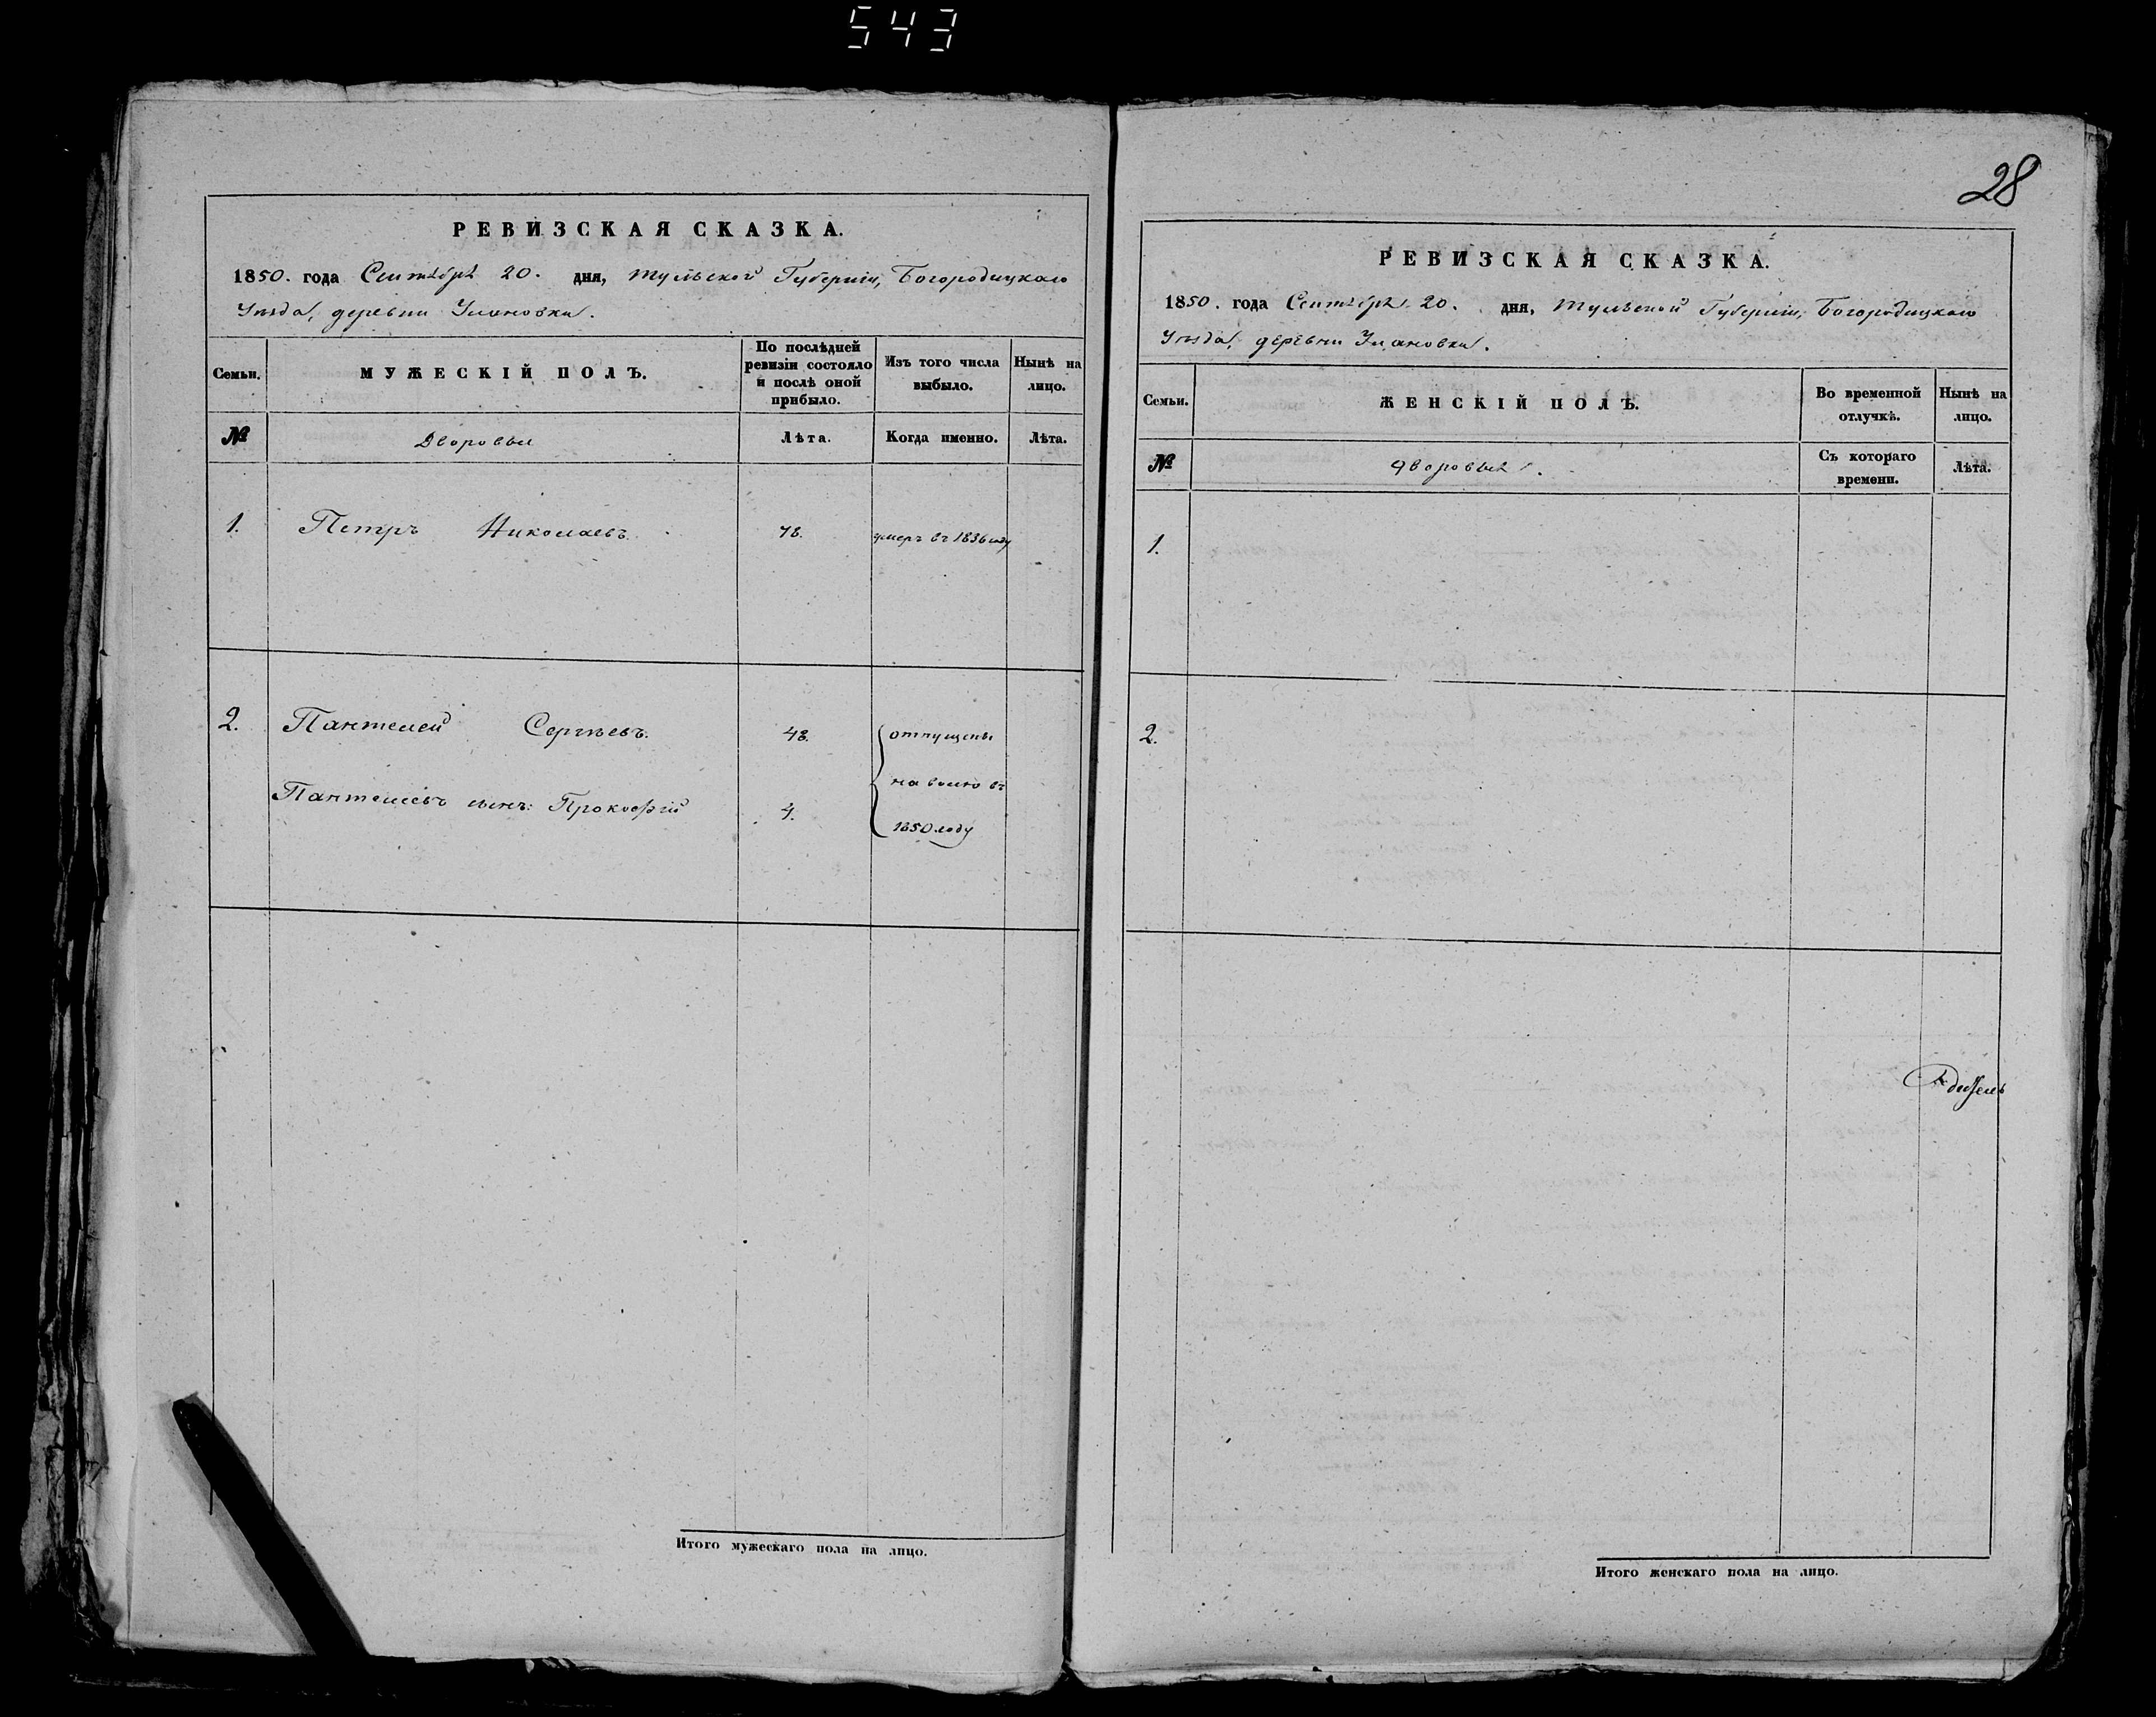 543
РЕВИЗСКАЯ СКАЗКА.
1850. года Сентября 20. дня, Тульской Губерніи, Богородицкаго
Уѣзда, деревни
Семьи.
МУЖЕСКІЙ ПОЛЪ.
По послѣдней
ревизіи состояло
и послѣ оной
прибыло.
Изъ того числа
выбыло.
Нынѣ на
лицо.
№
Дворовыя
Лѣта.
Когда именно.
Лѣта.
1. Петръ Николаевъ. 78. умеръ въ 1836 году
2. Пантелей Сергѣевъ. 48. отпущены
на волю въ
Пантелеевъ сынъ: Прокофій 4.
1850 году
Итого мужескаго пола на лицо.
28
РЕВИЗСКАЯ СКАЗКА.
1850. года Сентября 20. дня, Тульской Губерніи, Богородицкаго
Уѣзда, деревни
Семьи.
ЖЕНСКІЙ ПОЛЪ.
Во временной
отлучкѣ.
Нынѣ на
лицо.
№
Дворовыя.
Съ котораго
времени.
Лѣта.
1.
2.
Итого женскаго пола на лицо.